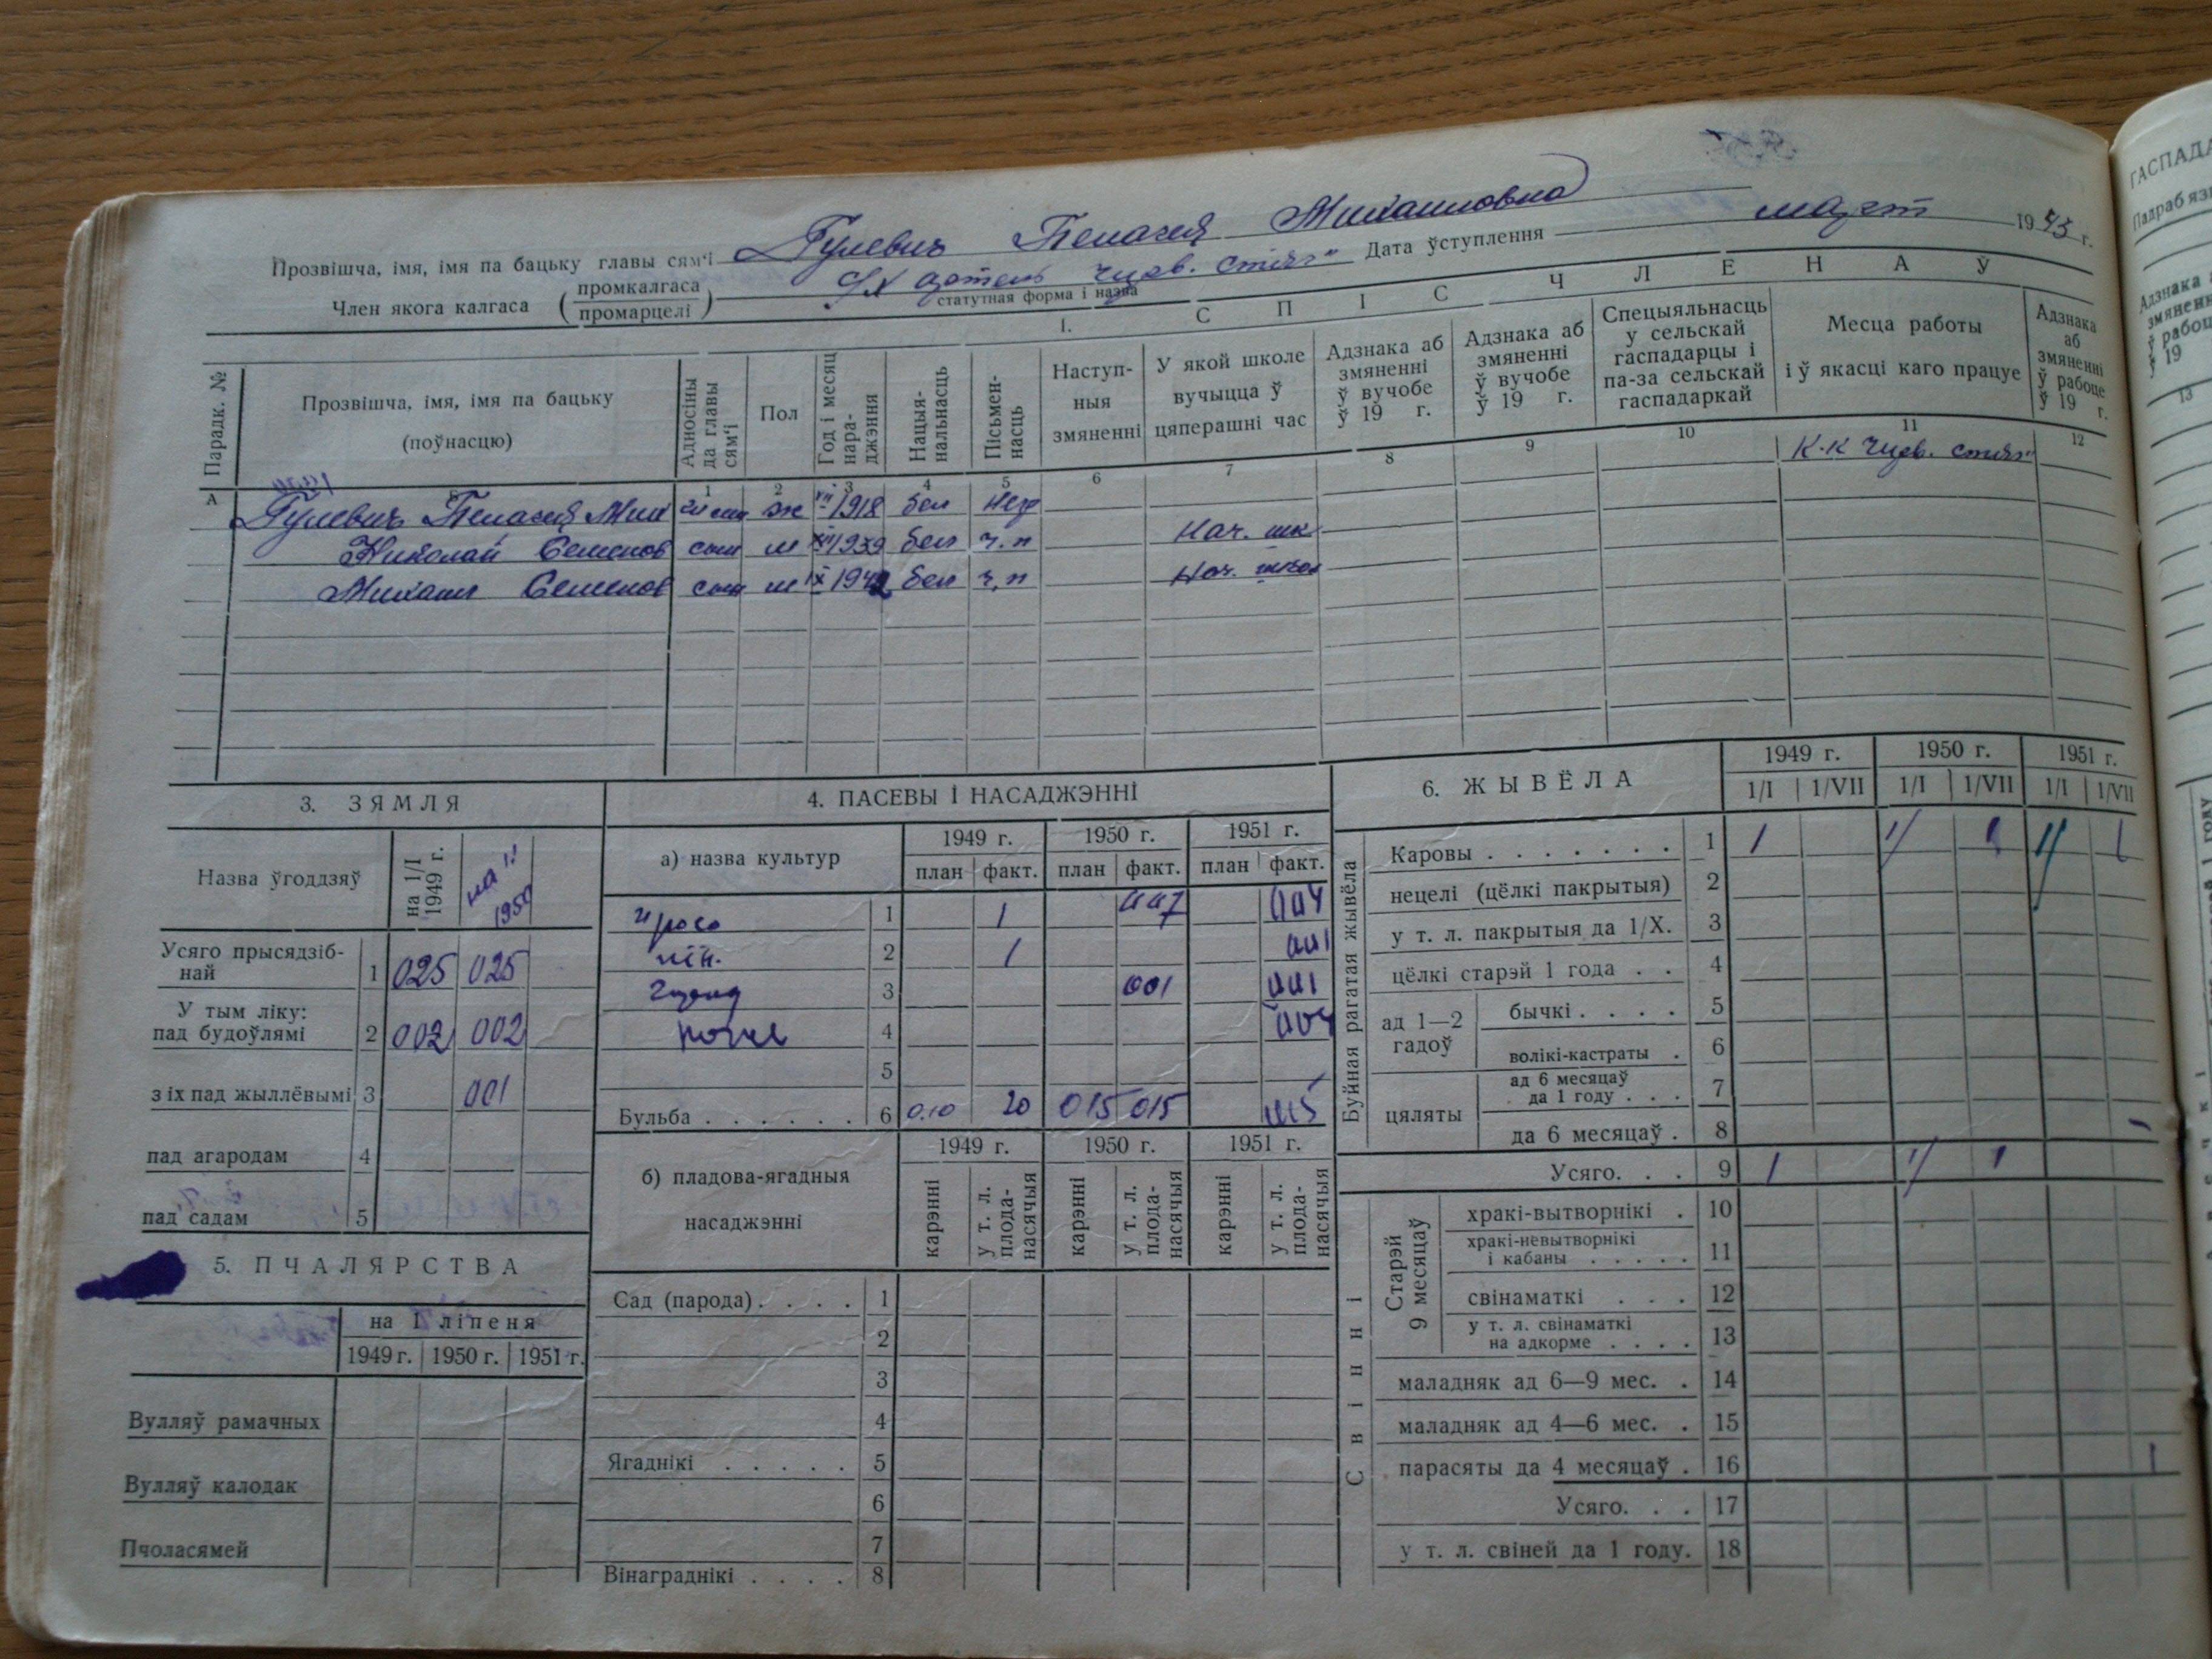 Прозвішча, імя, імя па бацьку главы сям'і Гулевич Пелагея Михайловна
Член якога калгаса (промкалгаса промарцелі) с/х артель Чырв. Сцяг" Дата ўступлення март 1943 г.
статутная форма і назва
1. С П І С Ч Л Е Н А Ў
Парадк. №
Прозвішча, імя, імя па бацьку (поўнасцю)
Адносіны да главы сям'і
Пол
Год і месяц нараджэння
Нацыянальнасць
Пісьменнасць
Наступныя змяненні
У якой школе вучыцца ў цяперашні час
Адзнака аб змяненні ў вучобе ў 19 г.
Адзнака аб змяненні ў вучобе ў 19 г.
Спецыяльнасць у сельскай гаспадарцы і па-за сельскай гаспадаркай
Месца работы і ў якасці каго працуе
Адзнака аб змяненні ў рабоце ў 19 г.
А 1 2 3 4 5 6 7 8 9 10 11 12
Гулевич Пелагея Мих ж VII 1918 бел К-к Чырв. Сцяг"
Николай Семенов сын м 1939 бел ч.п Нач. шк.
Михаил Семенов сын м IX 1942 бел ч.п Нач. школ
3. ЗЯМЛЯ
Назва ўгоддзяў на 1/I 1949 г. на 1.1 1950
Усяго прысядзібнай 1 025 025
У тым ліку: пад будоўлямі 2 002 002
з іх пад жыллёвымі 3 001
пад агародам 4
пад садам 5
5. ПЧАЛЯРСТВА
на 1 ліпеня
1949 г. 1950 г. 1951 г.
Вулляў рамачных
Вулляў калодак
Пчоласямей
4. ПАСЕВЫ І НАСАДЖЭННІ
а) назва культур 1949 г. 1950 г. 1951 г.
план факт. план факт. план факт.
просо 1 1 007 004
лён. 2 1 001
3 001 001
4 004
5
Бульба 6 0.10 20 015 015 015
б) пладова-ягадныя насаджэнні 1949 г. 1950 г. 1951 г.
карэнні у т. л. плоданасячыя карэнні у т. л. плоданасячыя карэнні у т. л. плоданасячыя
Сад (парода) 1
2
3
4
Ягаднікі 5
6
7
Вінаграднікі 8
6. ЖЫВЁЛА 1949 г. 1950 г. 1951 г.
1/I 1/VII 1/I 1/VII 1/I 1/VII
Буйная рагатая жывёла
Каровы 1 1 1 1 1 1
нецелі (цёлкі пакрытыя) 2
у т. л. пакрытыя да 1/X. 3
цёлкі старэй 1 года 4
ад 1—2 гадоў
бычкі 5
волікі-кастраты 6
цяляты
ад 6 месяцаў да 1 году 7
да 6 месяцаў 8
Усяго 9 1 1 1
Свінні
Старэй 9 месяцаў
хракі-вытворнікі 10
хракі-невытворнікі і кабаны 11
свінаматкі 12
у т. л. свінаматкі на адкорме 13
маладняк ад 6—9 мес. 14
маладняк ад 4—6 мес. 15
парасяты да 4 месяцаў 16 1
Усяго 17
у т. л. свіней да 1 году. 18